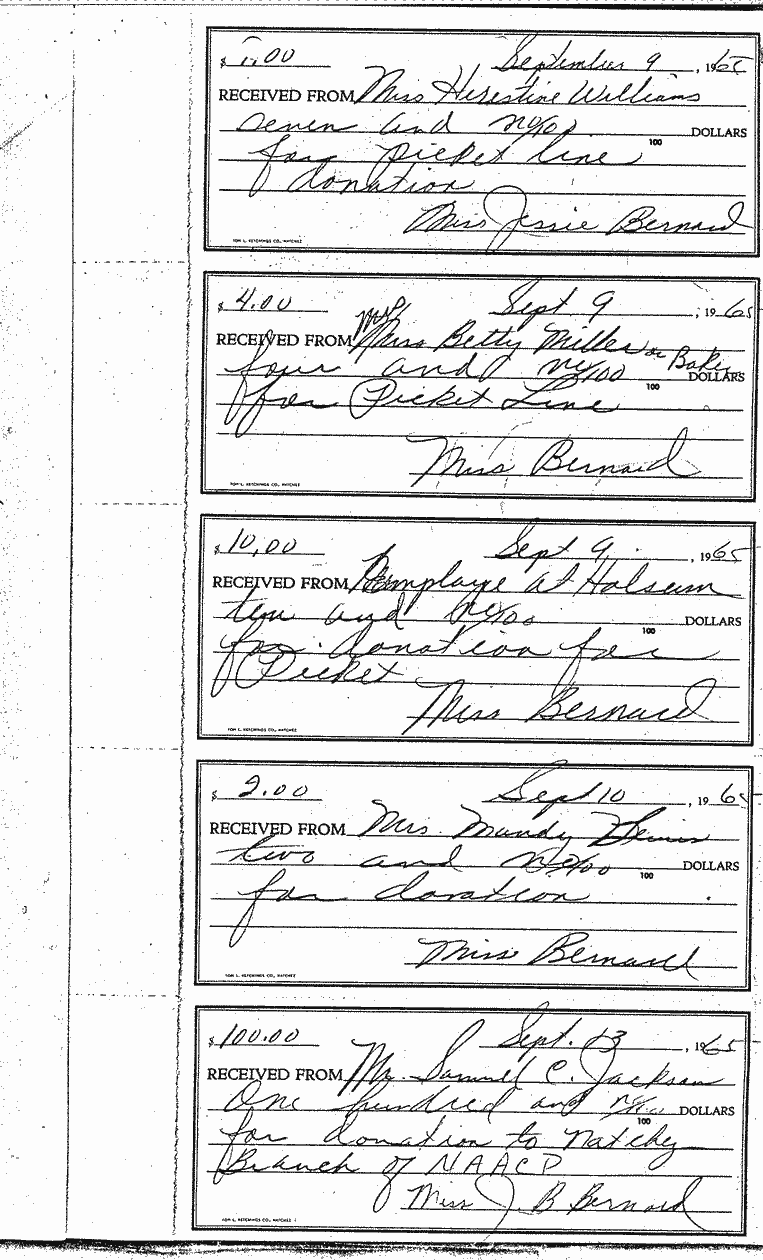 $ 7.00 September 9, 1965
RECEIVED FROM Miss Herestine Williams
seven and no/100 100 DOLLARS
for picket line
donation
Miss Jessie Bernard
TOM L. KETCHINGS CO., NATCHEZ
$ 4.00 Sept 9, 1965
Mrs
RECEIVED FROM Miss Betty Miller or Baker
four and no/100 100 DOLLARS
for Picket Line
Miss Bernard
TOM L. KETCHINGS CO., NATCHEZ
$ 10.00 Sept 9, 1965
RECEIVED FROM Employe at Holsum
ten and no/100 100 DOLLARS
for donation for
Picket
Miss Bernard
TOM L. KETCHINGS CO., NATCHEZ
$ 2.00 Sept 10, 1965
RECEIVED FROM Mrs. Mandy
two and no/100 100 DOLLARS
for donation
Miss Bernard
TOM L. KETCHINGS CO., NATCHEZ
$ 100.00 Sept. 13, 1965
RECEIVED FROM Mr. Samuel C. Jackson
One hundred and no/100 100 DOLLARS
for donation to Natchez
Branch of NAACP
Miss J. B. Bernard
TOM L. KETCHINGS CO., NATCHEZ